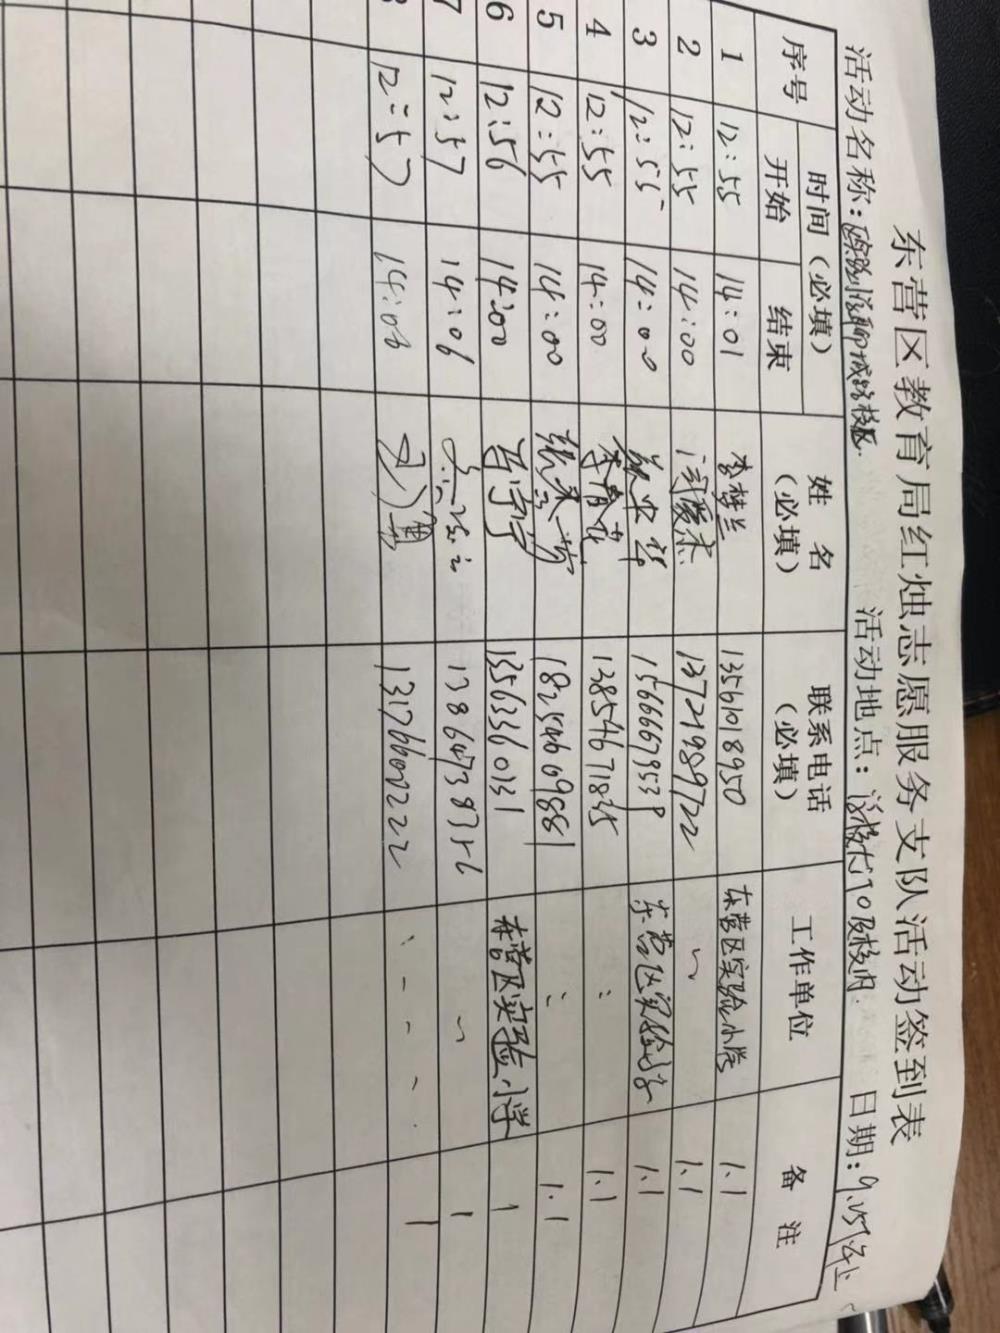 东营区教育局红烛志愿服务支队活动签到表
活动名称：聊城路校区 活动地点：校大门口及校内 日期：9.
序号 时间（必填） 姓名（必填） 联系电话（必填） 工作单位 备注
开始 结束
1 12:55 14:01 李梦兰 13561018950 东营区实验小学 1.1
2 12:55 14:00 闫爱杰 13721989722 〃 1.1
3 12:55 14:00 15666679539 东营区实验小学 1.1
4 12:55 14:00 李春花 13854671845 : 1.1
5 12:55 14:00 18254609881 : 1.1
6 12:56 14:00 13563360131 东营区实验小学 1
7 12:57 14:06 13864738756 〃 1
8 12:57 14:06 13176600222 1